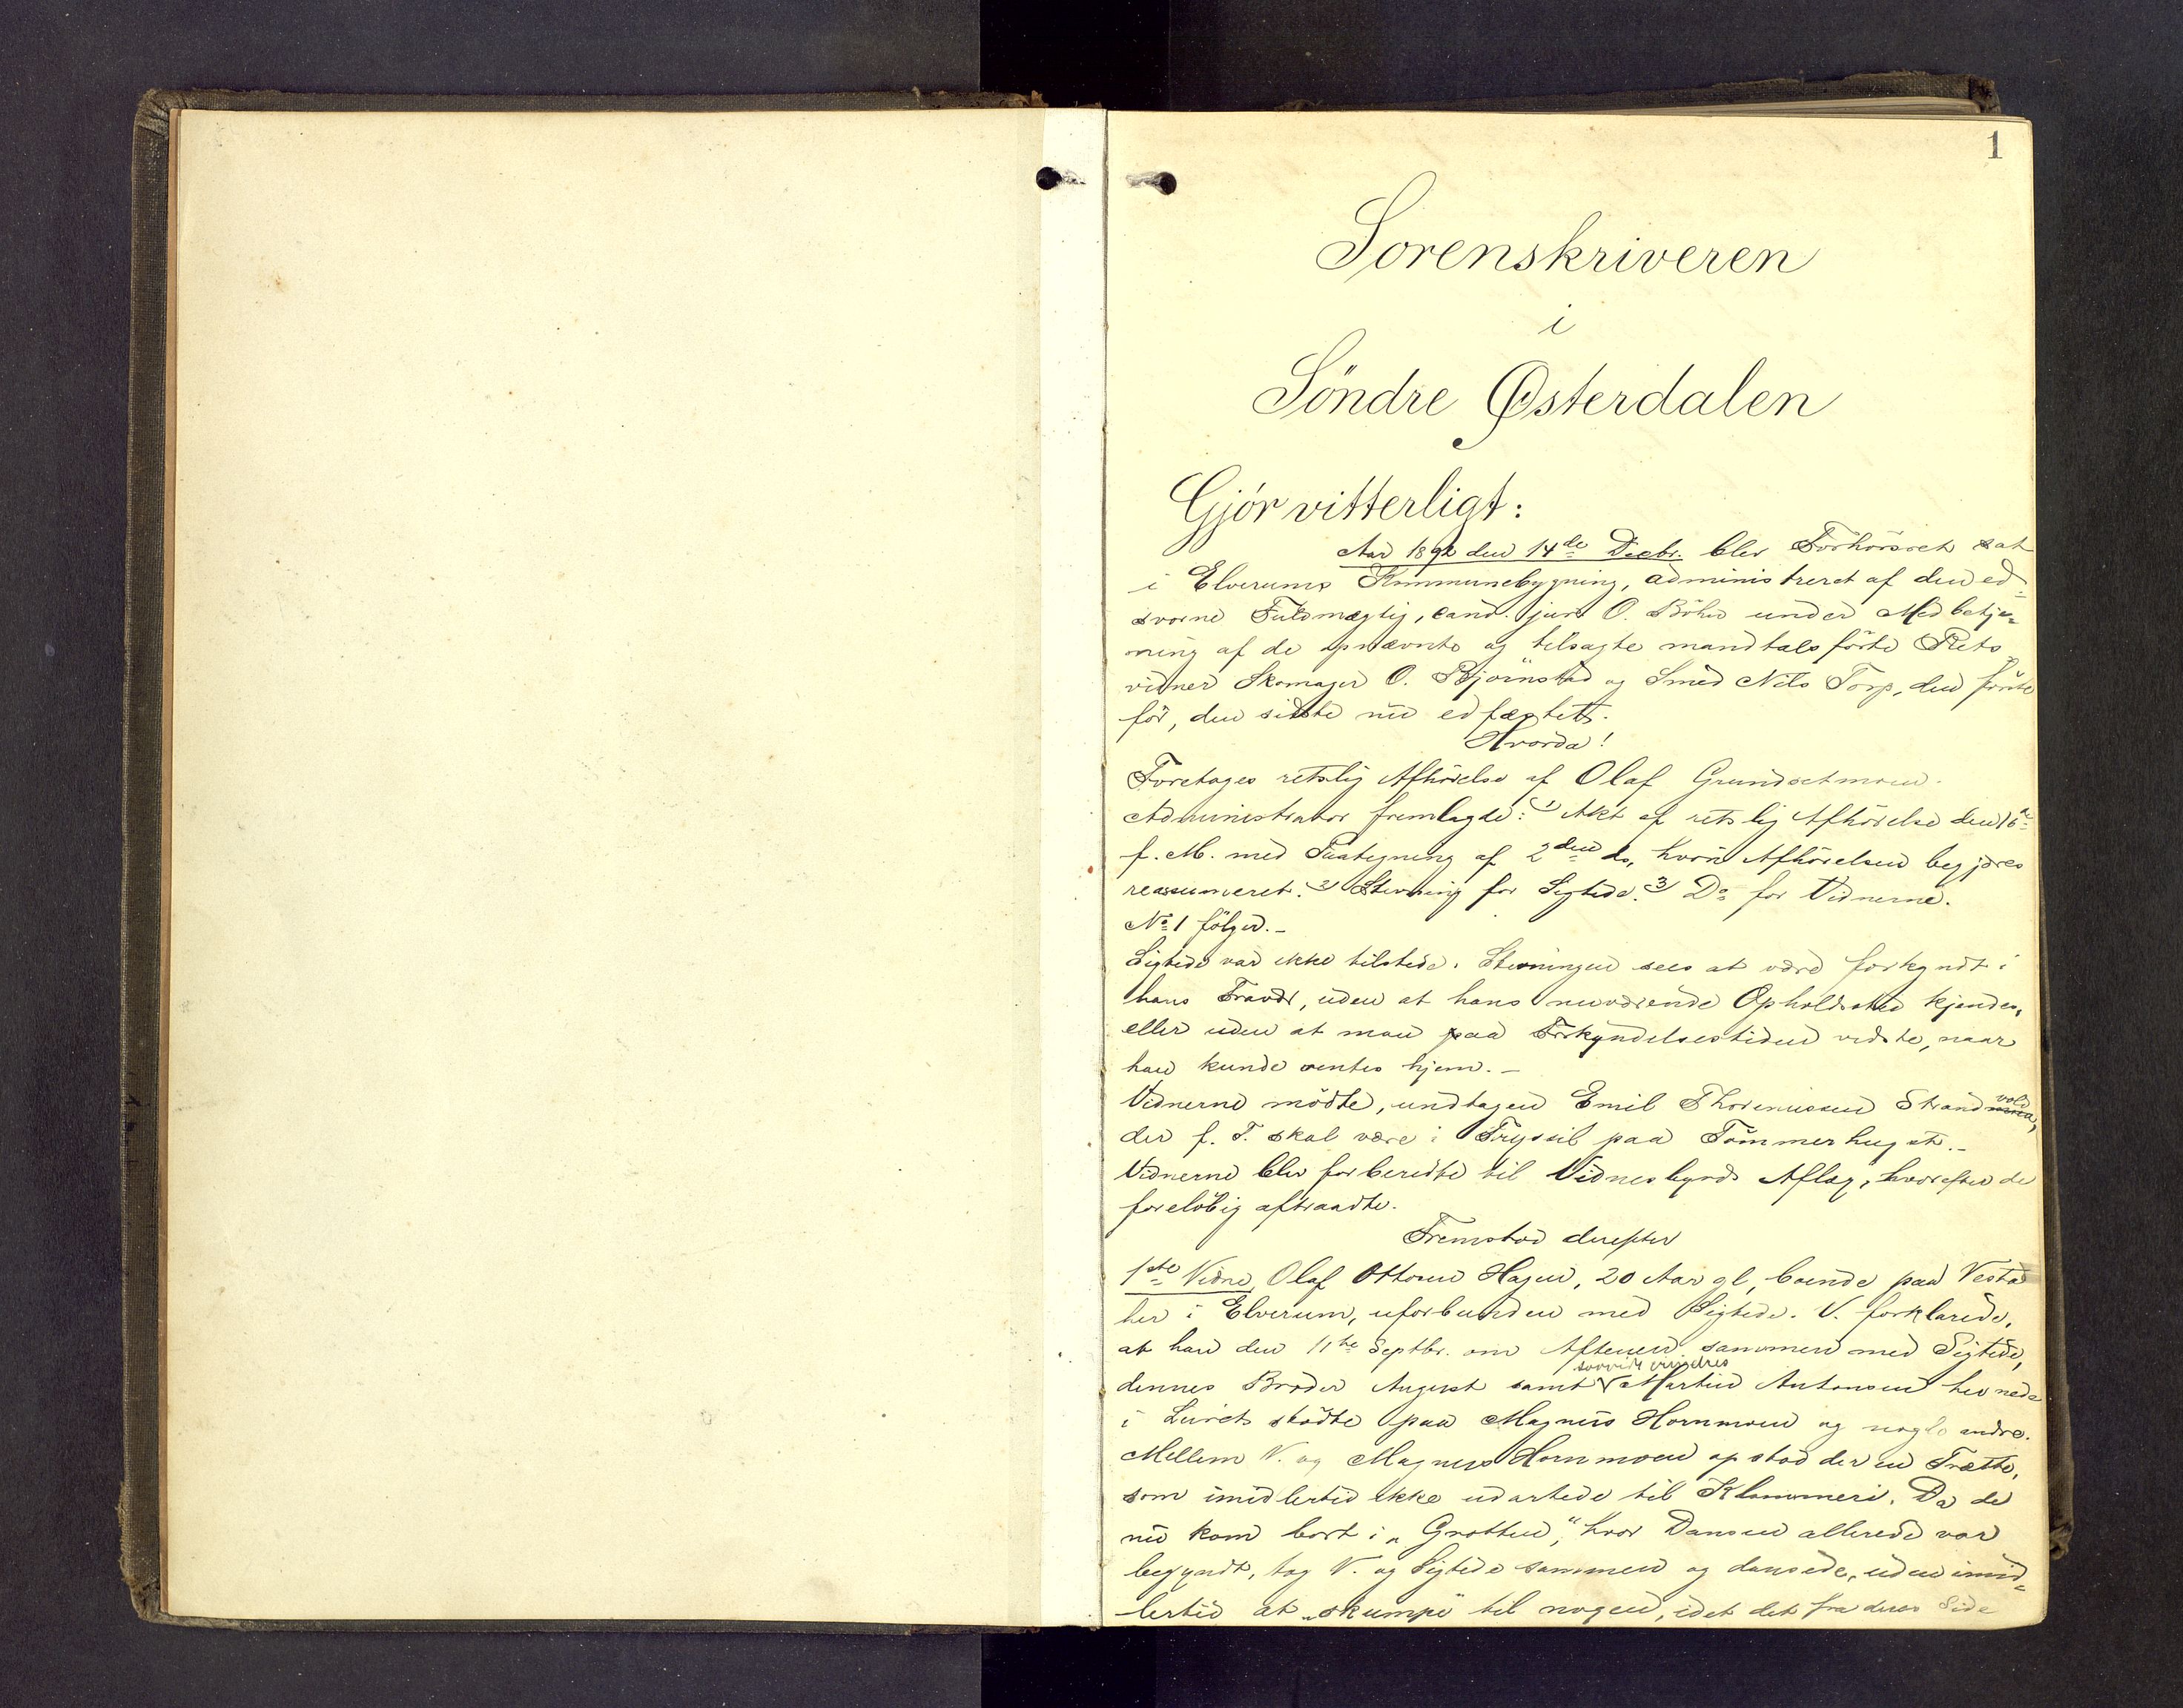 1
Sorenskriveren
i
Söndre Østerdalen
Gjör vitterligt:
Aar 1892 den 14de Decbr. blev Forhörsret sat
i Elverums Kommunebygning, administreret af den ed=
svorne Fuldmægtig, cand. jur. O. Böhn under Medbetje=
ning af de opnævnte og tilsagte mandtalsförte Rets=
vidner Skomager O. Björnstad og Smed Nils Torp, den förste
för, den sidste nu edfæstet.
Hvorda!
Foretoges retslig Afhörelse af Olaf Grundsetmoen.
Administrator fremlagde: 1) Akt af retslig Afhörelse den 16de
f. M. med Paategning af 2den ds., hvori Afhörelsen begjæres
reassumeret. 2) Stevning for Sigtede. 3) Do for Vidnerne.
No 1 fölger.-
Sigtede var ikke tilstede. Stevningen sees at være forkyndt i
hans Fravær, uden at hans nuværende Opholdssted kjendes,
eller uden at man paa Forkyndelsestiden vidste, naar
han kunde ventes hjem.-
Vidnerne mödte, undtagen Emil Thorenussen Strandvold,
der f. T. skal være i Trysil paa Tömmerhugst.-
Vidnerne blev forberedte til Vidnesbyrds Aflæg, hvorefter de
foreløbig aftraadte.
Fremstod derefter
1ste Vidne, Olaf Ottosen Hagen, 20 Aar gl, boende paa Vestad
her i Elverum, uforbunden med Sigtede. V. forklarede,
at han den 11te Septbr. om Aftenen sammen med Sigtede,
dennes Broder August samt saavidt erindres Martin Antonsen her nede
i Leiret stödte paa Magnus Hornmoen og nogle andre.
Mellem V. og Magnus Hornmoen opstod der en Trætte,
som imidlertid ikke udartede til Klammeri. Da de
nu kom bort i „Grotten", hvor Dansen allerede var
begyndt, tog V. og Sigtede sammen og dansede, uden imid=
lertid at „skumpe" til nogen, idet det fra deres Side